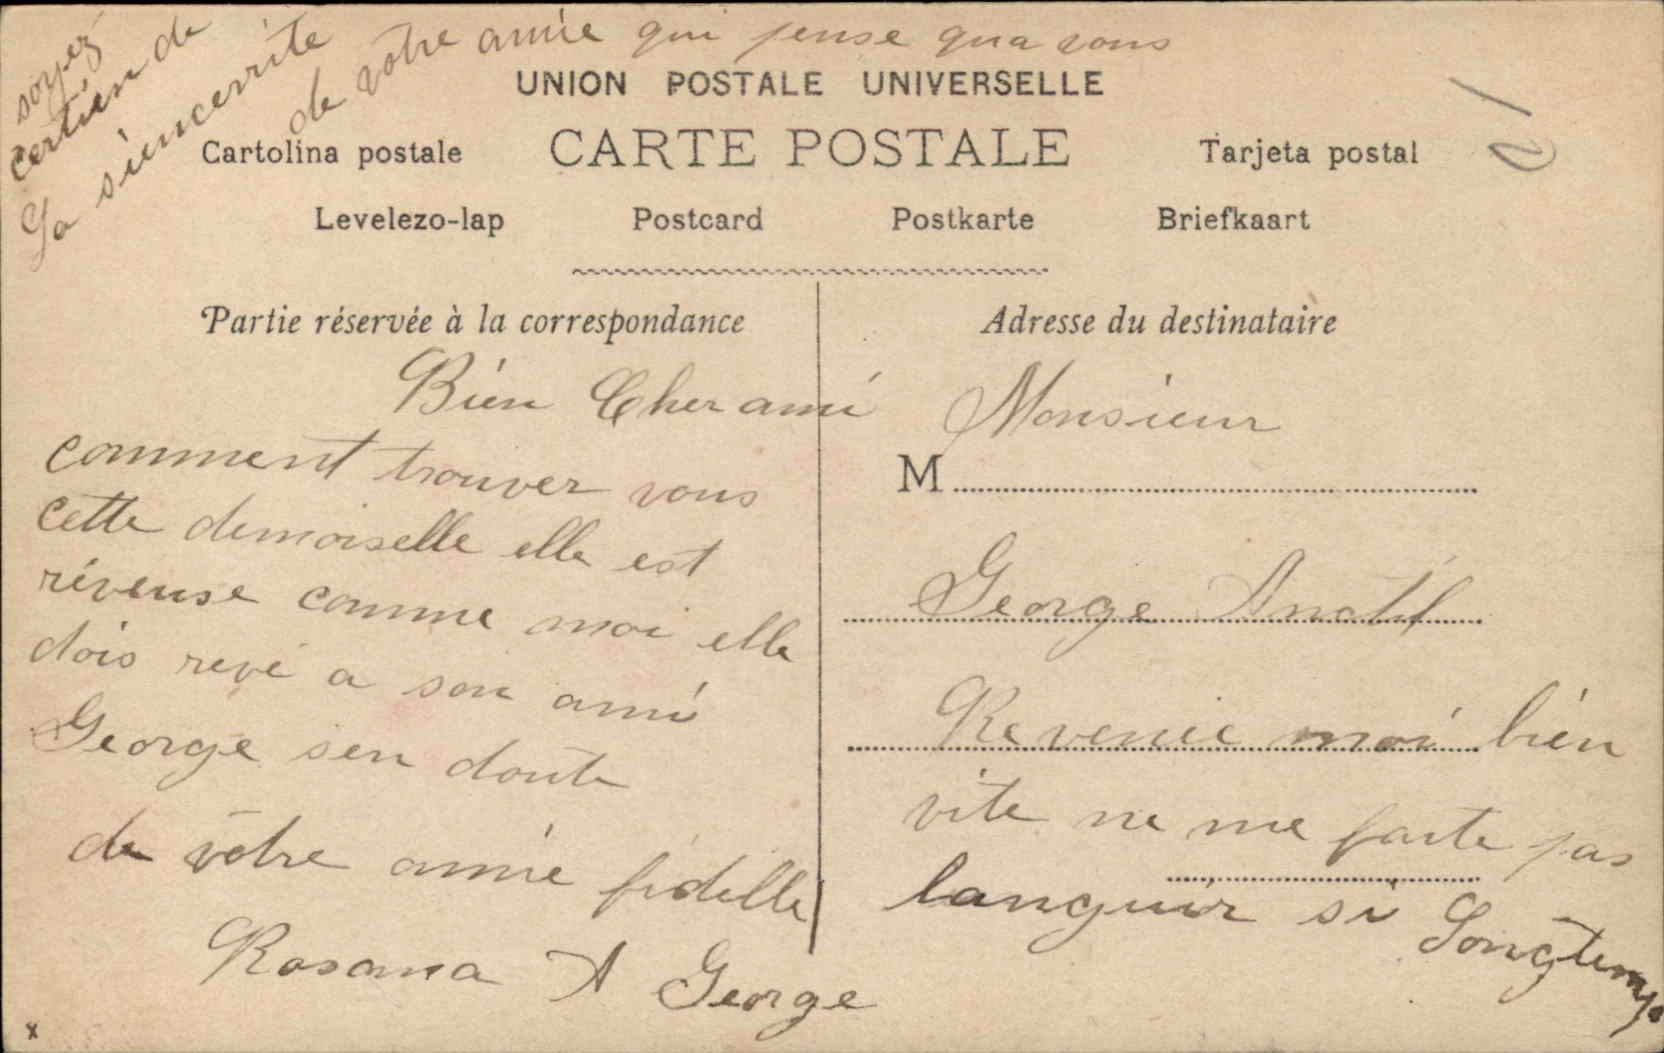 soyez
certien de
La siencerrite
de votre amie qui pense qua vous
UNION POSTALE UNIVERSELLE
Cartolina postale CARTE POSTALE Tarjeta postal
Levelezo-lap Postcard Postkarte Briefkaart
Partie réservée à la correspondance
Bien Cher ami
comment trouver vous
cette demoiselle elle est
rêveuse comme moi elle
dois revé a son ami
George sen doute
de vôtre amie fidelle
Rosana A George
Adresse du destinataire
Monsieur
M
George
Revenie moi bien
vite ne me faite pas
languir si Longtemps